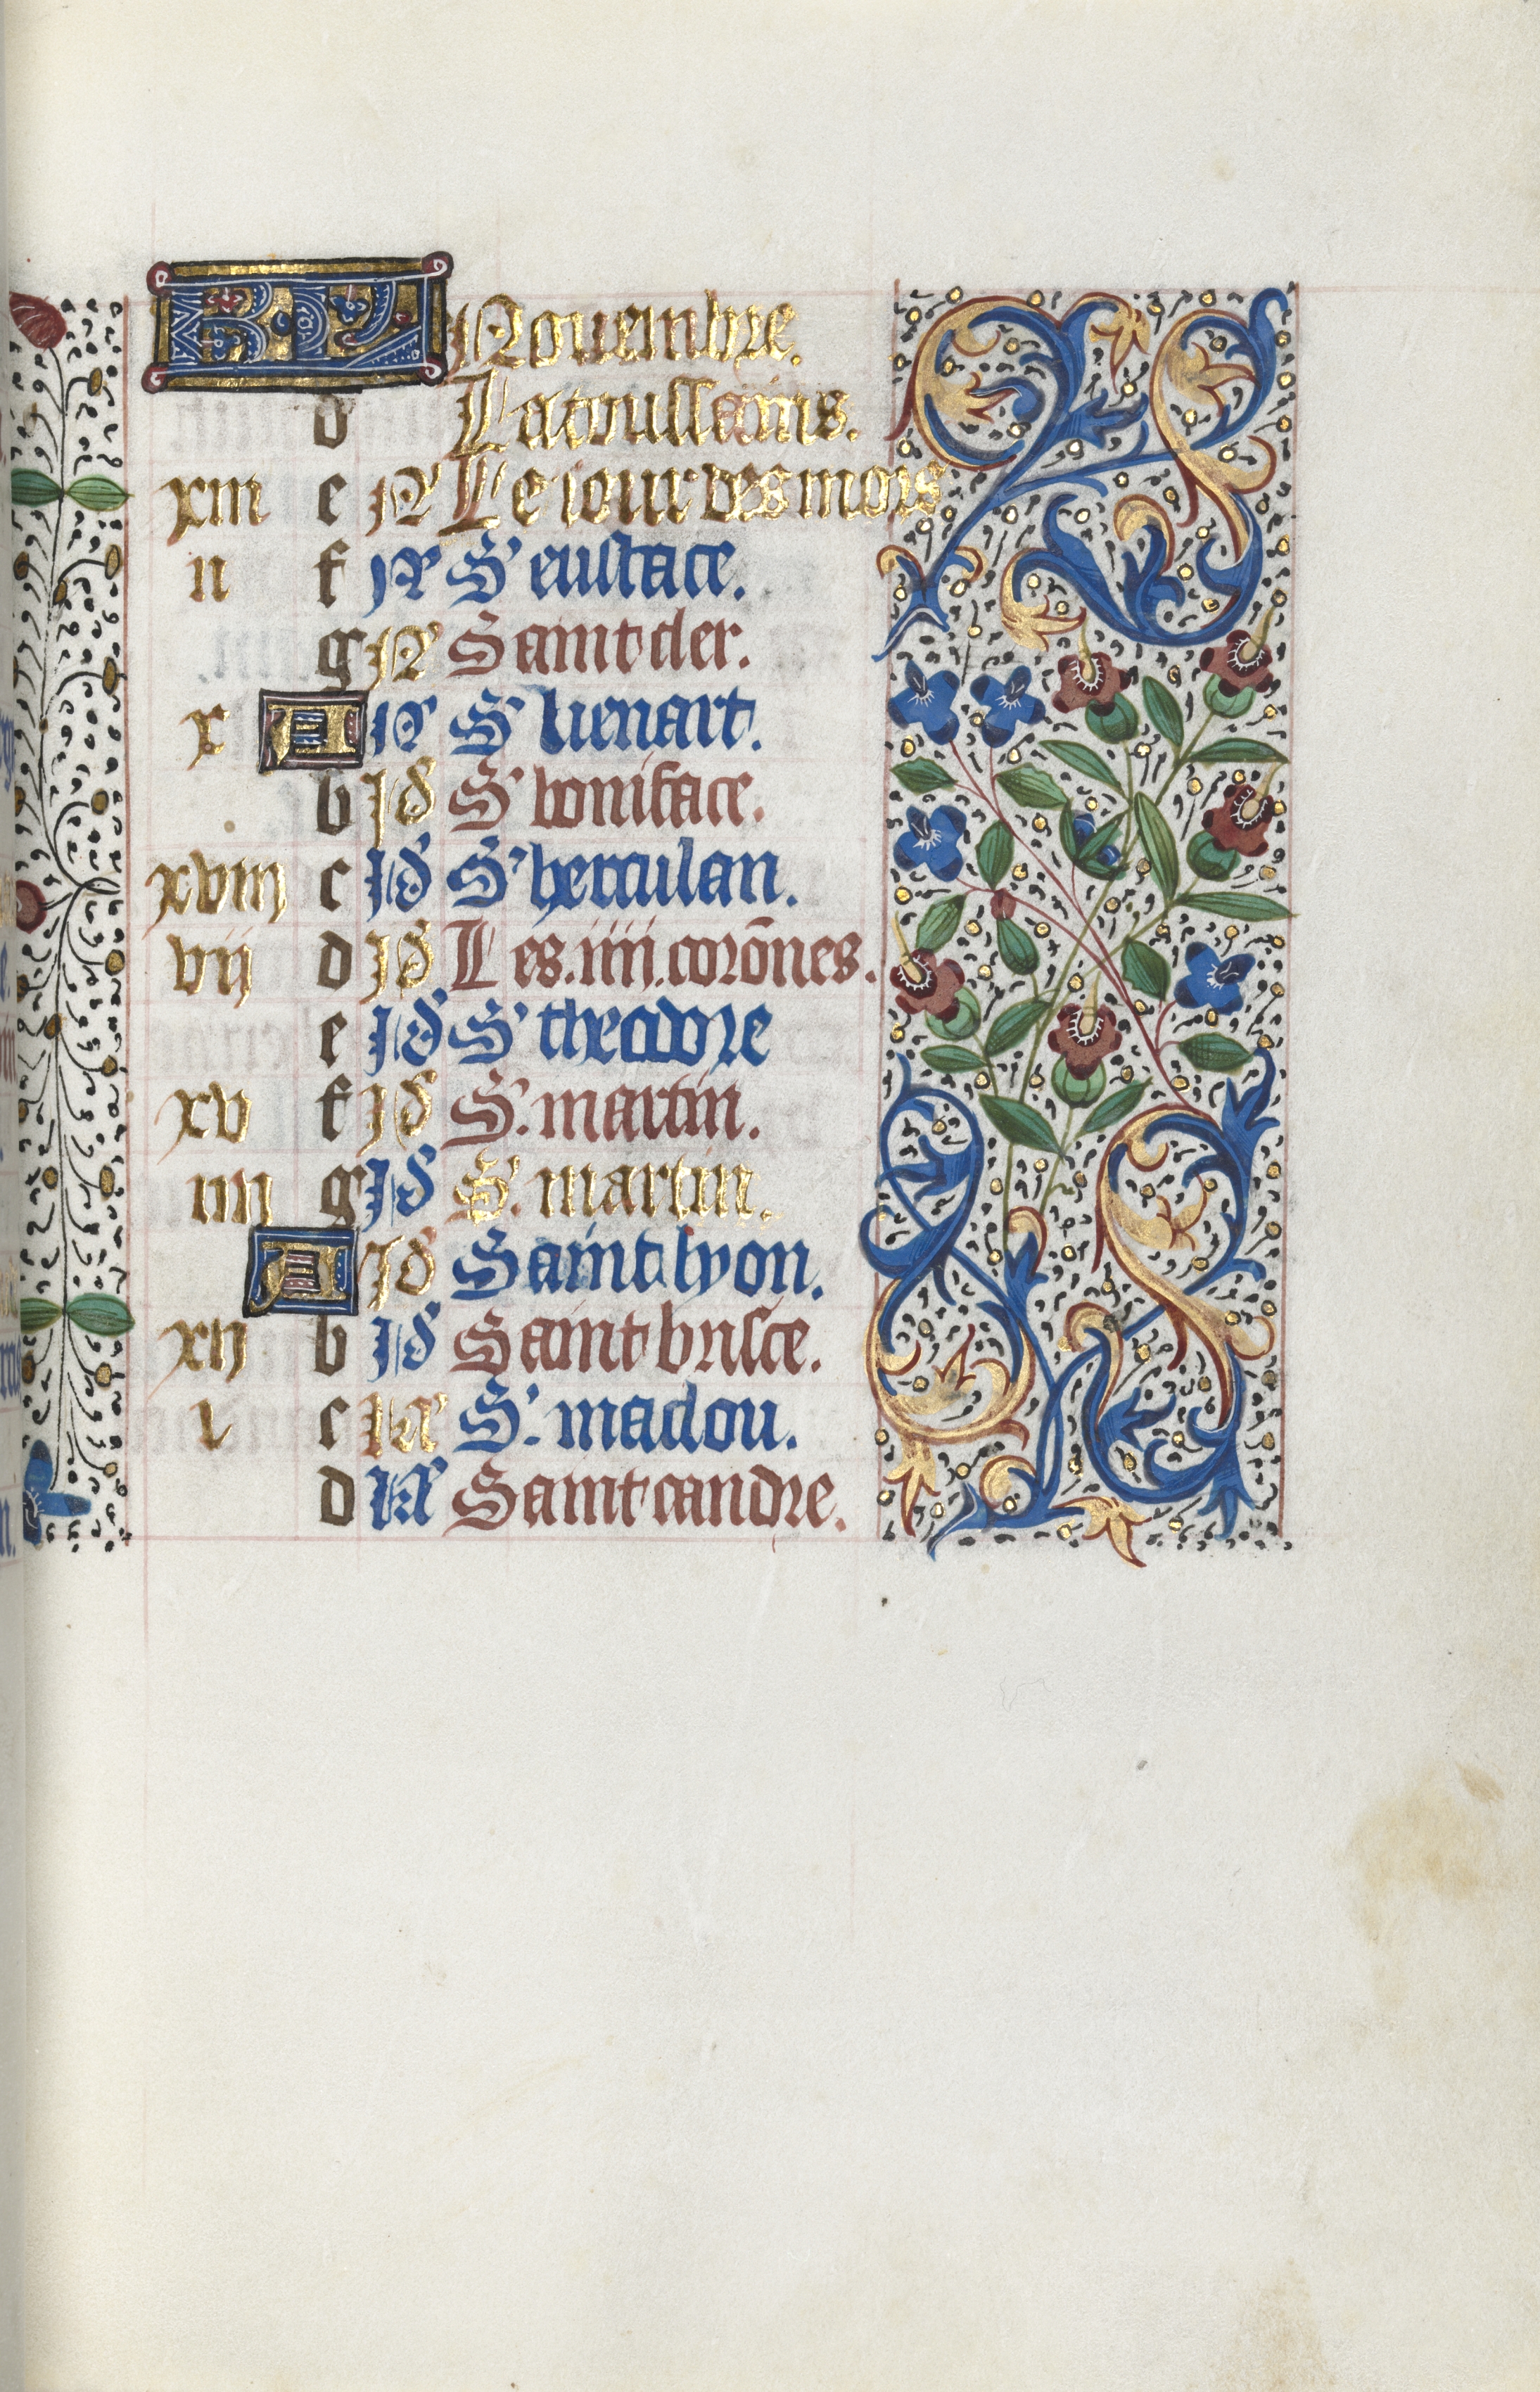 KL Nouembre.
d La toussains.
xiii e N Le iour des mors
ii f N S' eustace.
g N Saint cler.
x A N S' lienart.
b Id S' boniface.
xviii c Id S' herculan.
vii d Id Les .iiii. corōnes.
e Id S' theodore
xv f Id S. martin.
iiii g Id S. martin.
A Id Saint lyon.
xii b Id Saint brisce.
i c kl S'. maclou.
d kl Saint candre.